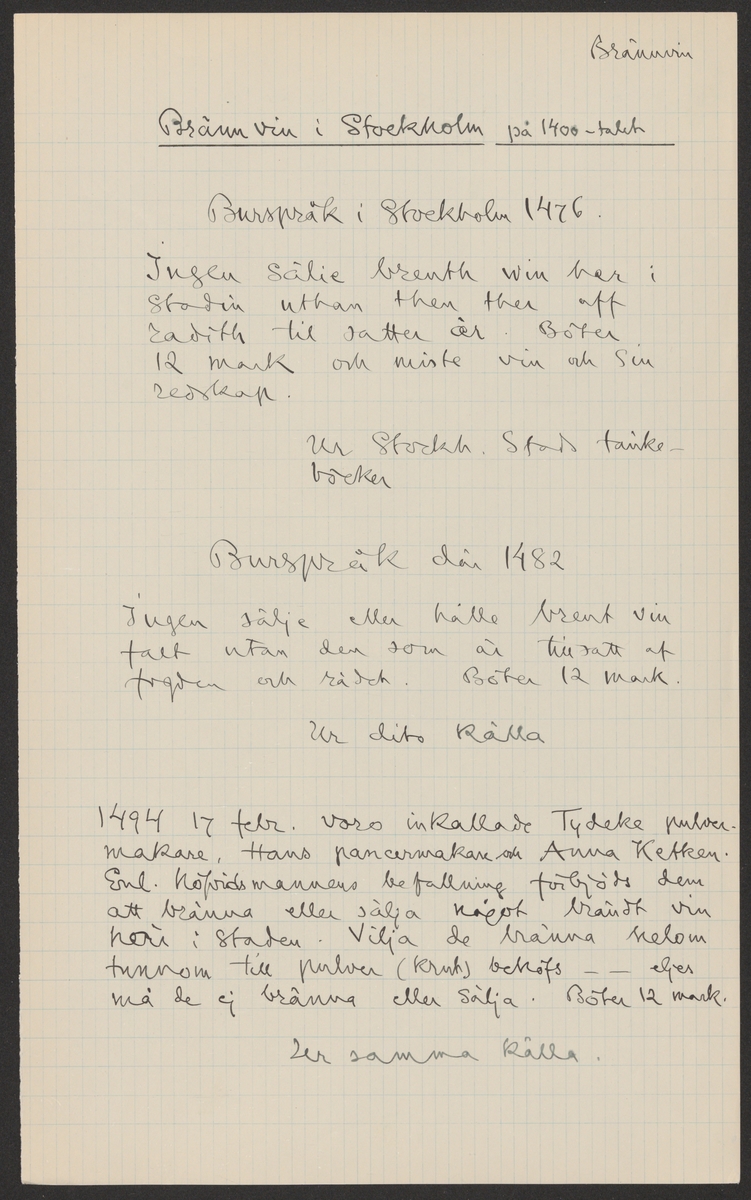 Brännvin
Brännvin i Stockholm på 1400-talet
Burspråk i Stockholm 1476.
Ingen sälie brenth win her i
stadin uthan then ther aff
radith til satter är. Böter
12 mark och miste vin och sin
redskap.
Ur Stockh. Stads tänke-
böcker
Burspråk där 1482
Ingen sälje eller hålle brent vin
falt utan den som är tillsatt af
fogden och rådet. Böter 12 mark.
Ur dito källa
1494 17 febr. voro inkallade Tydeke pulver-
makare, Hans pancermakare och Anna Ketken.
Enl. höfvidsmannens befallning förbjöds dem
att bränna eller sälja något brändt vin
här i staden. Vilja de bränna helom
tunnom till pulver (krut) behöfs — — eljes
må de ej bränna eller sälja. Böter 12 mark.
Ur samma källa.